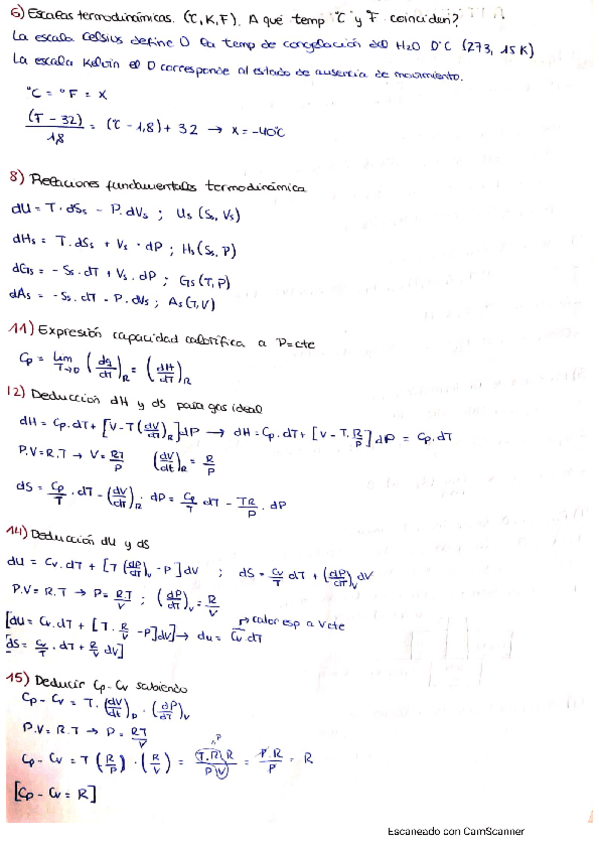 6) Escalas termodinámicas. (ºC, K, F). A qué temp "ºC" y "F" coinciden?
La escala Celsius define 0 la temp de congelación del H₂O 0ºC (273,15 K)
La escala Kelvin el 0 corresponde al estado de ausencia de movimiento.
ºC = ºF = X
(F - 32)/1,8 = (ºC - 1,8) + 32 → X = -40ºC
8) Relaciones fundamentales termodinámica
dU = T·dSs - P·dVs ; Us (Ss, Vs)
dHs = T·dSs + Vs·dP ; Hs (Ss, P)
dGs = -Ss·dT + Vs·dP ; Gs (T, P)
dAs = -Ss·dT - P·dVs ; As (T, V)
11) Expresión capacidad calorífica a P=cte
Cp = Lim T→0 (dq/dT)R = (dH/dT)R
12) Deducción dH y dS para gas ideal
dH = Cp·dT + [V - T(dV/dT)R]dP → dH = Cp·dT + [V - T·R/P]dP = Cp·dT
P.V = R.T → V = RT/P (dV/dt)R = R/P
dS = Cp/T · dT - (dV/dT)R · dP = Cp/T dT - TR/P · dP
14) Deducción dU y dS
dU = Cv·dT + [T(dP/dT)v - P]dV ; dS = Cv/T dT + (dP/dT)v dV
P.V = R.T → P = RT/V ; (dP/dT)v = R/V
[dU = Cv·dT + [T·R/V - P]dV] → du = Cv dT → calor esp a V cte
[dS = Cv/T · dT + R/V dV]
15) Deducir Cp-Cv sabiendo
Cp - Cv = T·(dV/dt)P · (dP/dT)V
P.V = R.T → P = RT/V
Cp - Cv = T(R/P)·(R/V) = T.R\R/P\V = P.R/P = R
[Cp - Cv = R]
Escaneado con CamScanner